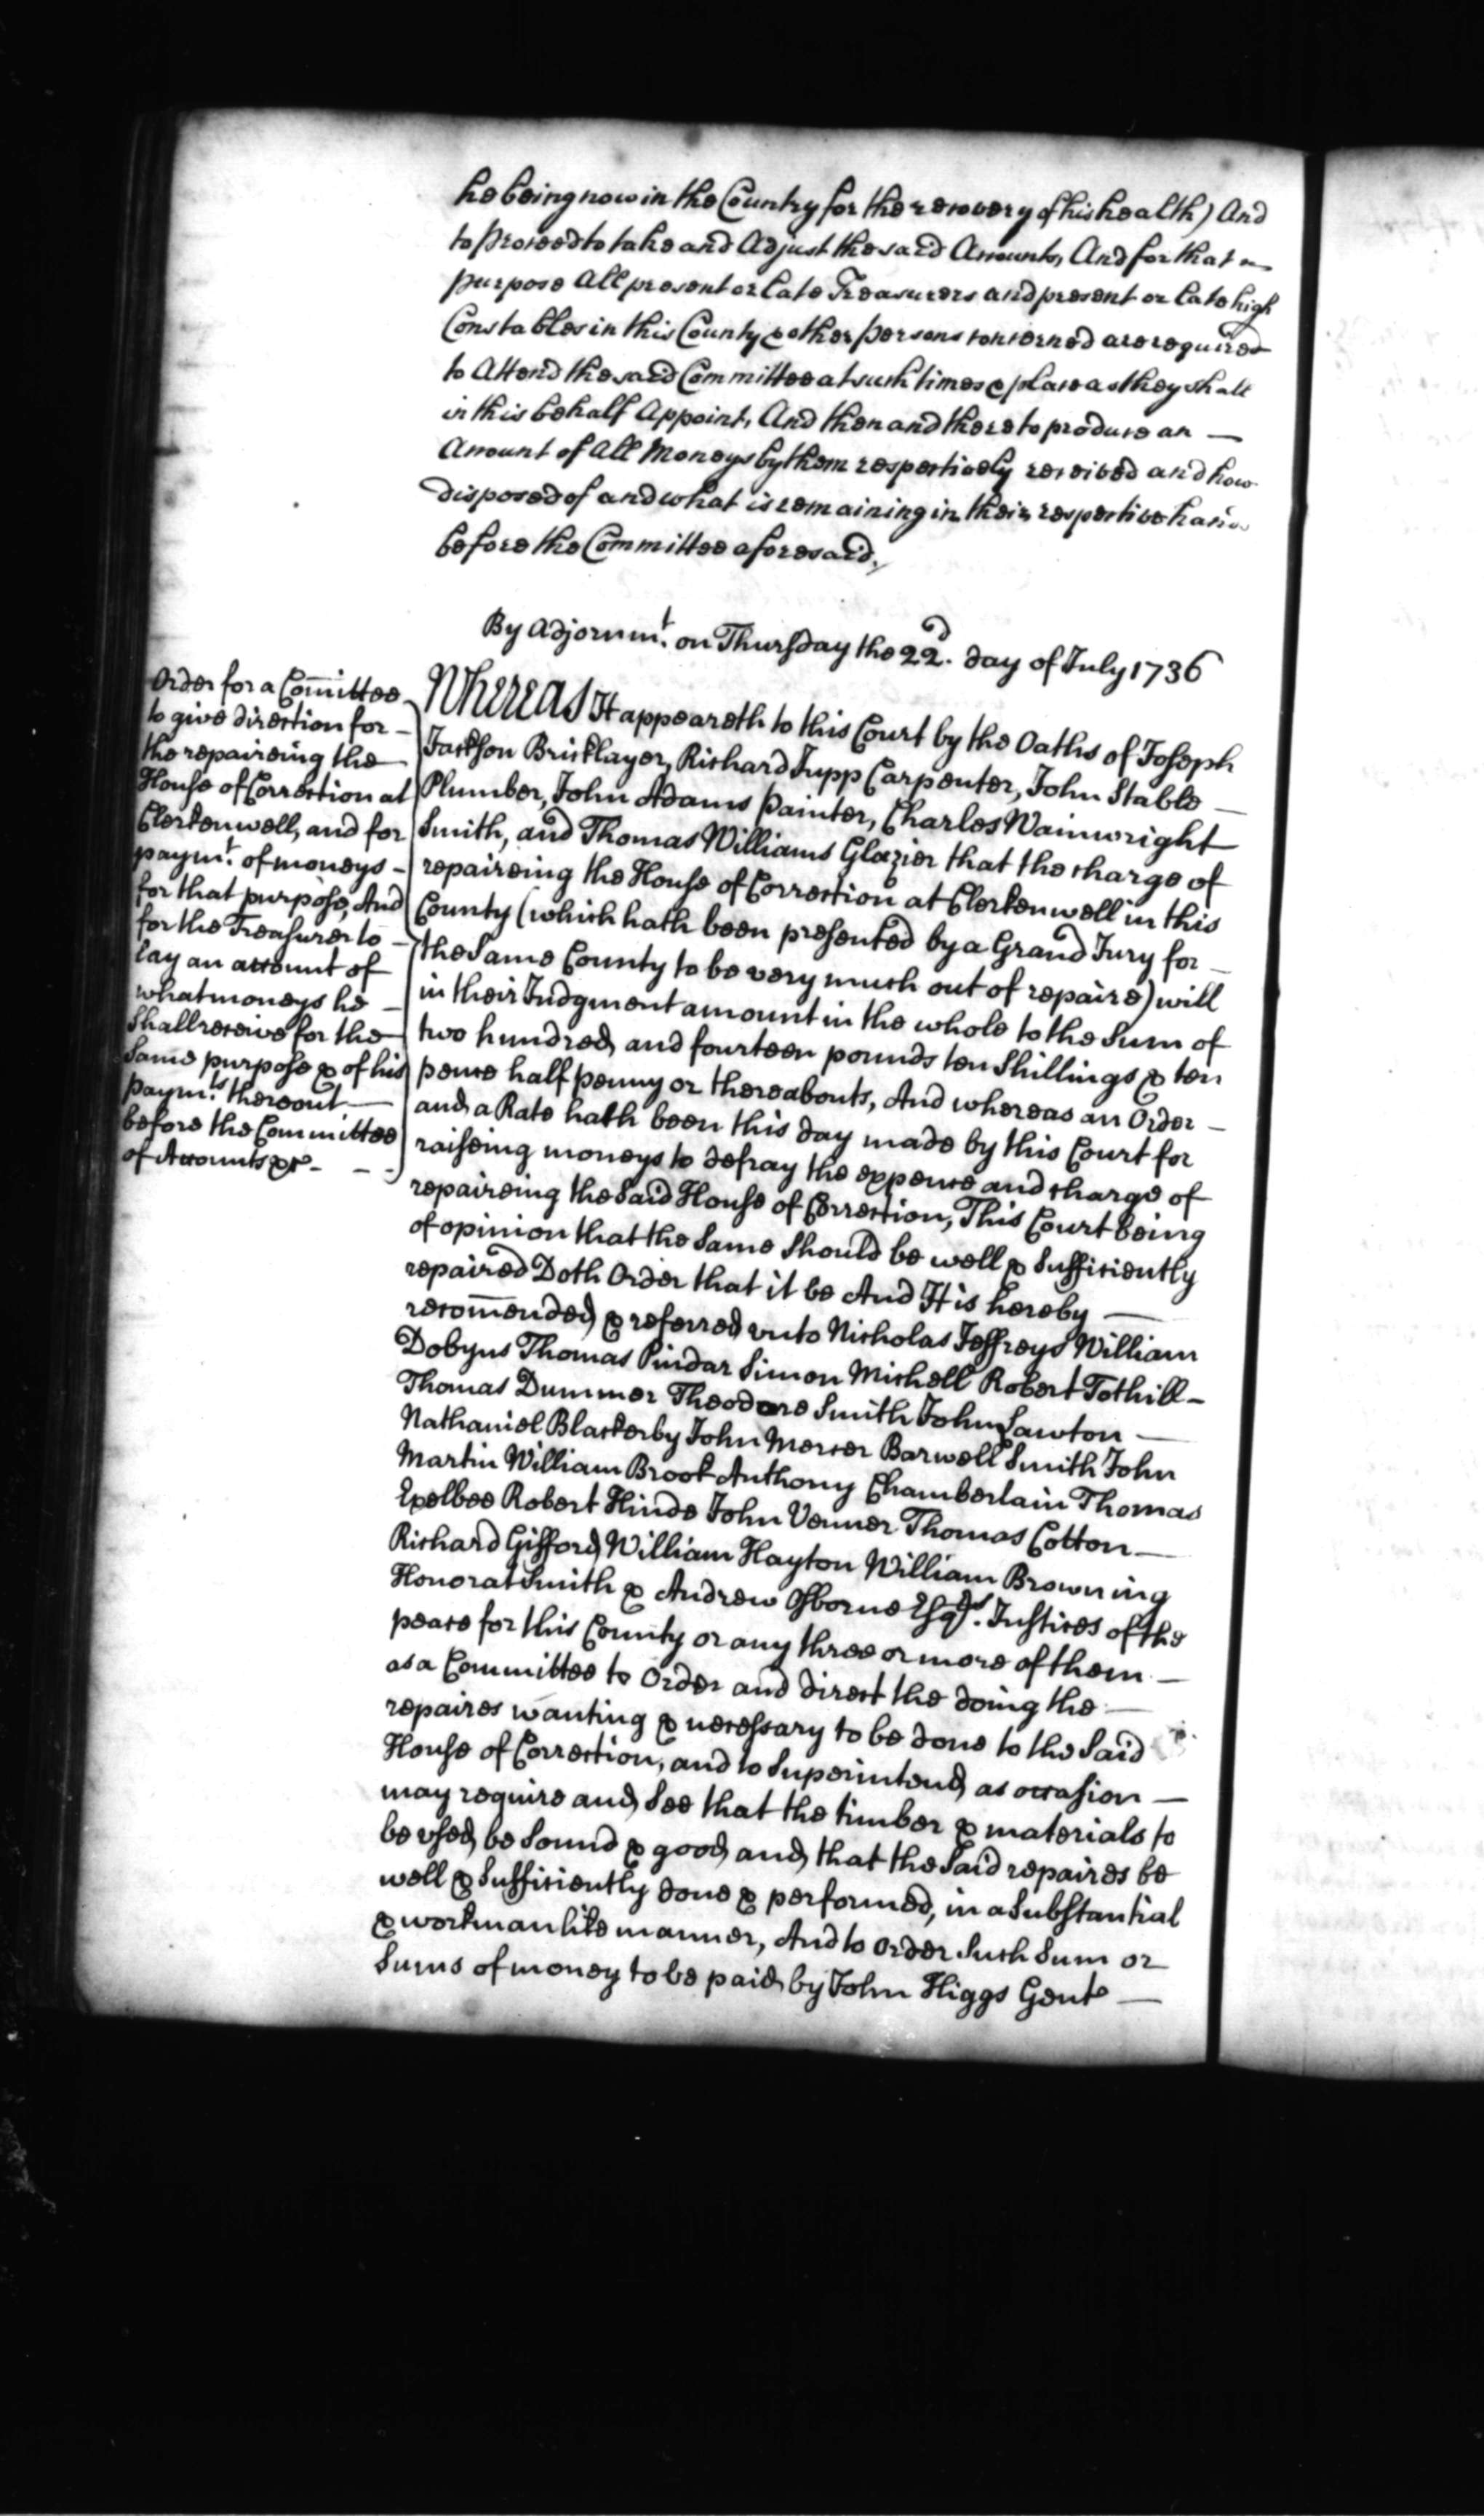 he being now in the Country for the recovery of his health) And
to proceed to take and Adjust the said Accounts, And for that
purpose All present or late Treasurers and present or late high
Constables in this County & other persons concerned are required
to Attend the said Committee at such times & place as they shall
in this behalf Appoint, And then and there to produce an —
Account of All Moneys by them respectively received and how
disposed of and what is remaining in their respective hands
before the Committee aforesaid,
By Adjornmt. on Thursday the 22d. day of July 1736
Order for a Com̄ittee
to give direction for —
the repaireing the —
House of Correction at
Clerkenwell, and for
paymt. of moneys —
for that purpose, And
for the Treasurer to —
lay an account of
what moneys he —
Shall receive for the
Same purpose & of his
paymts. thereout —
before the Committee
of Accounts &c - - -
Whereas It appeareth to this Court by the Oaths of Joseph
Jackson Bricklayer, Richard Jupp Carpenter, John Stable —
Plumber, John Adams Painter, Charles Wainwright
Smith, and Thomas Williams Glazier that the charge of
repaireing the House of Correction at Clerkenwell in this
County (which hath been presented by a Grand Jury for —
the Same County to be very much out of repaire) will
in their Judgment amount in the whole to the Sum of
two hundred and fourteen pounds ten Shillings & ten
pence half penny or thereabouts, And whereas an Order —
and a Rate hath been this day made by this Court for
raiseing moneys to defray the expence and charge of
repaireing the Said House of Correction, This Court being
of opinion that the Same Should be well & Sufficiently
repaired Doth Order that it be And It is hereby —
recom̄ended & referred unto Nicholas Jeffreys William
Dobyns Thomas Pindar Simon Michell Robert Tothill —
Thomas Dummer Theodore Smith John Lawton —
Nathaniel Blackerby John Mercer Barwell Smith John
Martin William Brook Anthony Chamberlain Thomas
Exelbee Robert Hinde John Venner Thomas Cotton —
Richard Gifford William Hayton William Browning
Honorat Smith & Andrew Osborne Esqrs. Justices of the
peace for this County or any three or more of them —
as a Committee to Order and direct the doing the —
repaires wanting & necessary to be done to the Said
House of Correction, and to Superintend as occasion —
may require and See that the timber & materials to
be vsed be Sound & good and that the Said repaires be
well & Sufficiently done & performed, in a Substantial
& workmanlike manner, And to Order Such Sum or
Sums of money to be paid by John Higgs Gent —